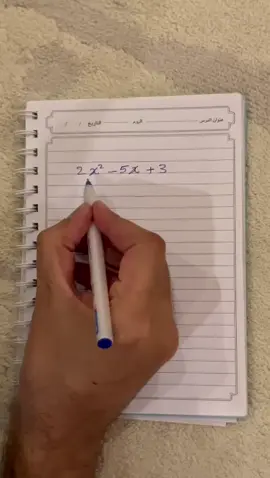 عنوان الدرس اليوم التاريخ / /
2x² - 5x + 3